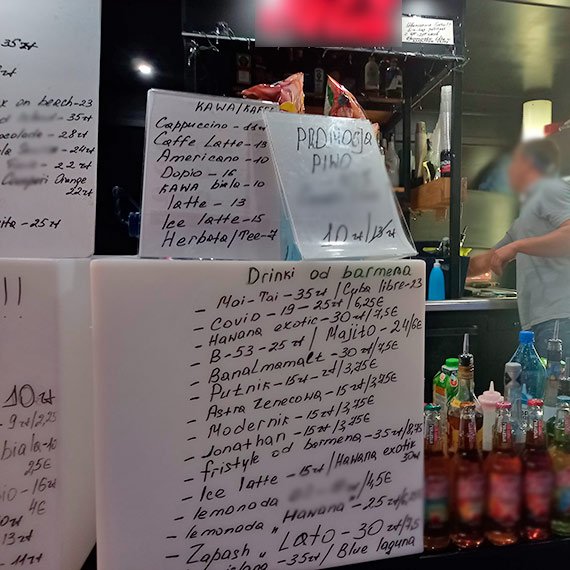 35zł
on beach-23
35zł
28zł
24zł
22zł
Orange
22zł
25zł
KAWA/KAFFE
Cappuccino - 11zł
Caffe Latte - 13
Americano - 10
Dopio - 16
KAWA biała - 10
latte - 13
Ice latte - 15
Herbata/Tee - 7
PROMOCJA
PIWO
10zł/13zł
!!
10zł
9zł/2,25
biała-10
25€
16zł
4€
13zł
11zł
Drinki od barmena
- Mai-Tai - 35zł/Cuba libre-23
- Covid - 19 - 25zł/6,25€
- Hawana exotic - 30zł/7,5€
- B-53 - 25zł/Majito - 24/6€
- Banalmamalt - 30zł/7,5€
- Putnik - 15zł - zł/3,75€
- Astra Zenecowa - 15zł/3,75€
- Modernik - 15zł/3,75€
- Jonathan - 15zł/3,75€
- fristyle od barmena - 35zł/8,75
- Ice latte - 15zł/Hawana exotik
30zł
- lemonada /4,5€
- lemonada "Hawana" - 25zł/
- Zapash "Lato - 30zł/7,5
- 35zł/Blue laguna